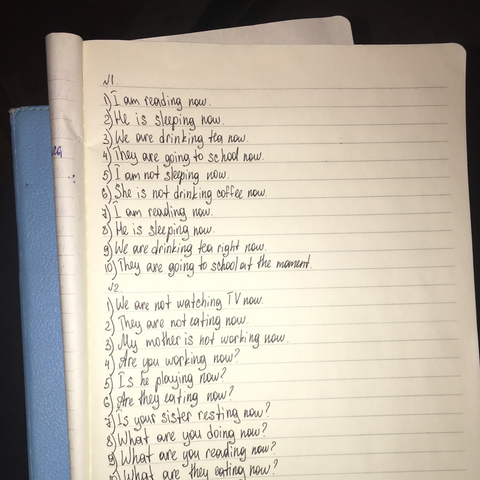 √1
1) I am reading now.
2) He is sleeping now.
3) We are drinking tea now.
4) They are going to school now.
5) I am not sleeping now.
6) She is not drinking coffee now.
7) I am reading now.
8) He is sleeping now.
9) We are drinking tea right now.
10) They are going to school at the moment.
√2.
1) We are not watching TV now.
2) They are not eating now.
3) My mother is not working now.
4) Are you working now?
5) Is he playing now?
6) Are they eating now?
7) Is your sister resting now?
8) What are you doing now?
9) What are you reading now?
10) What are they eating now?